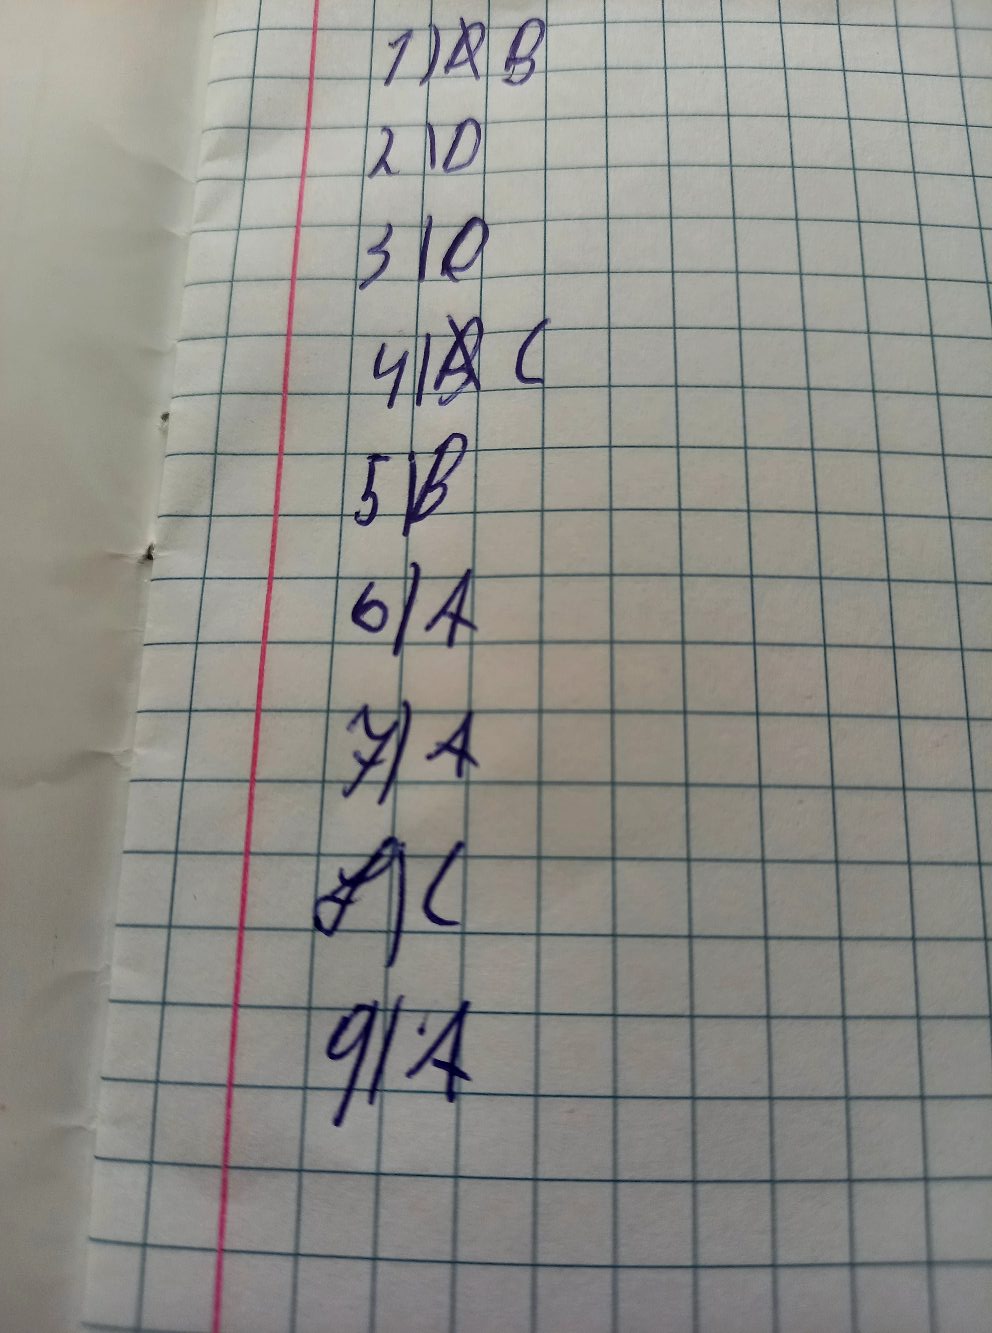 1) B
2) D
3) D
4) C
5) B
6) A
7) A
8) C
9) A